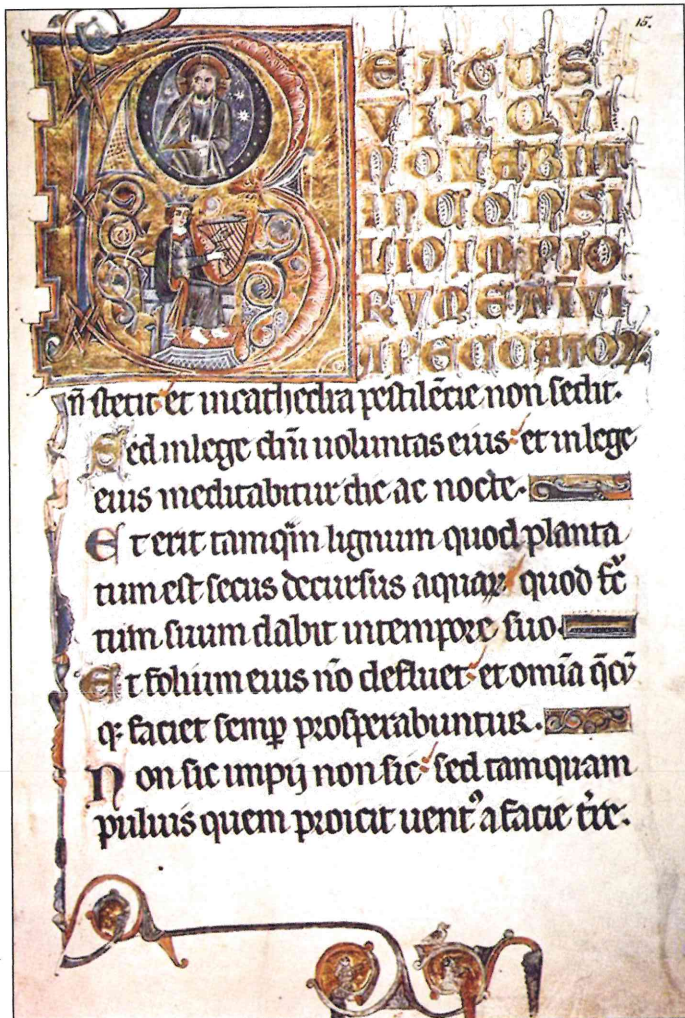 15.
BEATUS
VIR QVI
NON ABIIT
IN CONSI
LIO IMPIO
RVM ET Ī VI
A PECCATOR
n̄ stetit et in cathedra pestilēcie non sedit.
Sed in lege dn̄i uoluntas eius et in lege
eius meditabitur die ac nocte.
Et erit tamq̄m lignum quod planta
tum est secus decursus aquaꝝ quod fc̄
tum suum dabit in tempore suo.
Et folium eius nō defluet et om̄ia q̄cū
q; faciet semꝑ prosperabuntur.
Non sic impij non sic sed tamquam
puluis quem proicit uentꝰ a facie tr̄e.